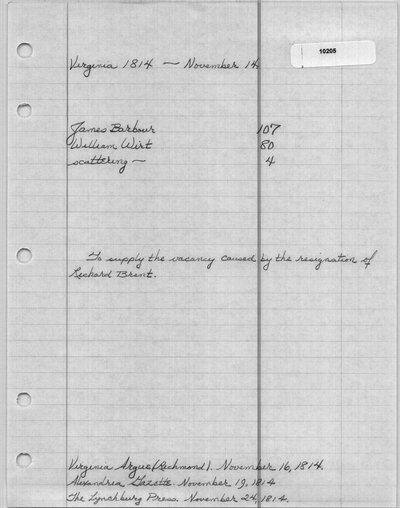 10205
Virginia 1814 — November 14
James Barbour 107
William Wirt 80
scattering — 4
To supply the vacancy caused by the resignation of
Richard Brent.
Virginia Argus (Richmond). November 16, 1814.
Alexandria Gazette. November 19, 1814
The Lynchburg Press. November 24, 1814.